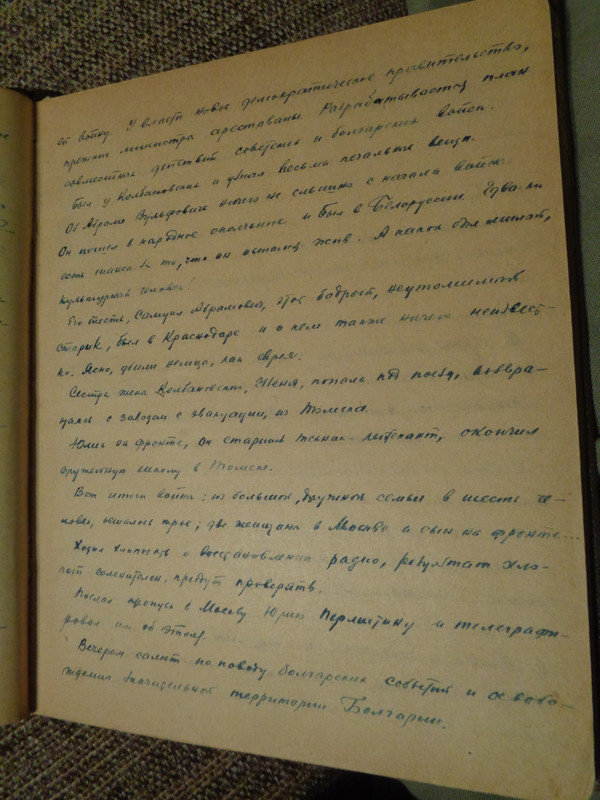 ей войну. У власти новое демократическое правительство,
прежние министры арестованы. Разрабатывается план
совместных действий советских и болгарских войск.
Был у Колбановских и узнал весьма печальные вещи.
Об Абраме Вульфовиче ничего не слышно с начала войны.
Он пошел в народное ополчение и был в Белоруссии. Едва ли
есть шансы за то, что он остался жив. А папок был милый,
культурный человек!
Его тесть, Самуил Абрамович, этот бодрый, неутомимый
старик, был в Краснодаре и о нем также ничего неизвест-
но. Ясно, убили немцы, как еврея.
Сестра жены Колбановского, Женя, попала под поезд, возвра-
щаясь с заводом с эвакуации, из Томска.
Юлий на фронте, он старший техник-лейтенант, окончил
оружейную школу в Томске.
Вот итоги войны: из большой, дружной семьи в шесть че-
ловек, осталось трое; две женщины в Москве и сын на фронте...
Ходил хлопотать о восстановлении радио, результат хло-
пот сомнителен, придут проверять.
Послал пропуск в Москву Юрию Перлштину и телеграфи-
ровал им об этом.
Вечером салют по поводу болгарских событий и освобо-
ждения значительной территории Болгарии.